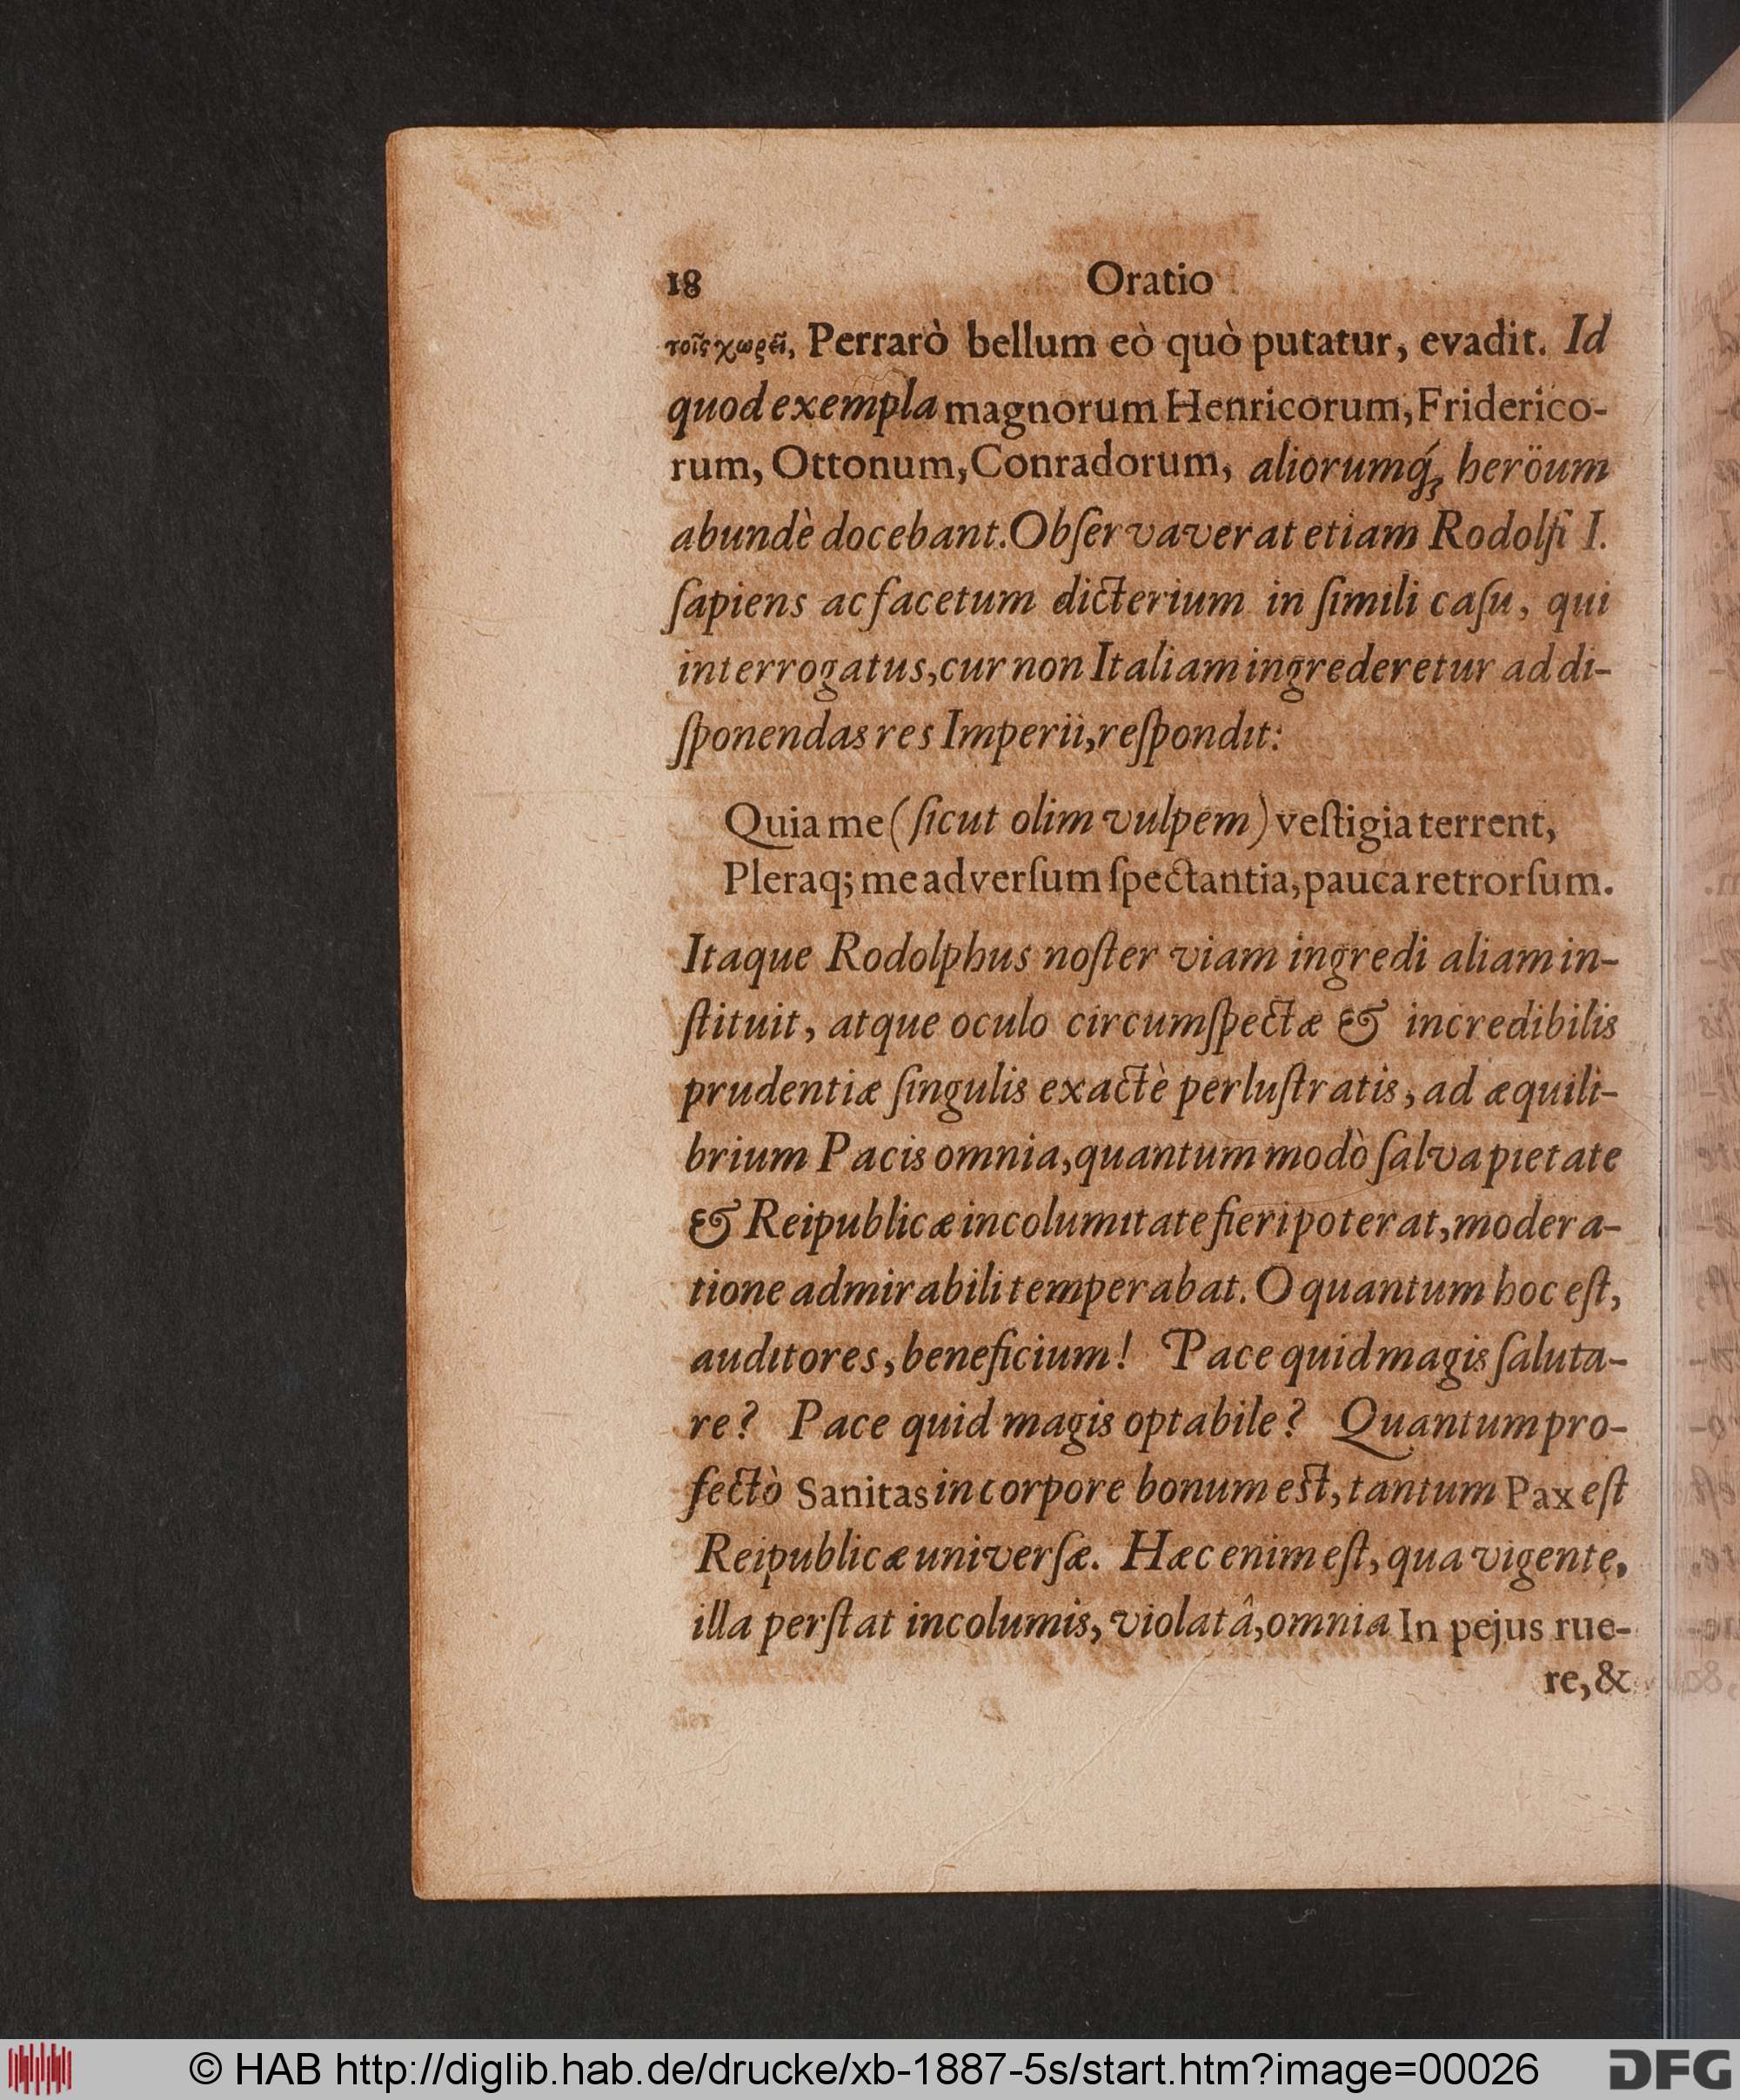 18 Oratio
τοῖς χωρεῖ, Perrarò bellum eò quò putatur, evadit. Id
quod exempla magnorum Henricorum, Friderico-
rum, Ottonum, Conradorum, aliorumq́; heröum
abundè docebant. Obſervaverat etiam Rodolfi I.
ſapiens ac facetum dicterium in ſimili caſu, qui
interrogatus, cur non Italiam ingrederetur ad di-
ſponendas res Imperii, reſpondit:
Quia me (ſicut olim vulpem) veſtigia terrent,
Pleraq; me adverſum ſpectantia, pauca retrorſum.
Itaque Rodolphus noſter viam ingredi aliam in-
ſtituit, atque oculo circumſpectæ & incredibilis
prudentiæ ſingulis exactè perluſtratis, ad æquili-
brium Pacis omnia, quantum modò ſalva pietate
& Reipublicæ incolumitate fieri poterat, modera-
tione admirabili temperabat. O quantum hoc eſt,
auditores, beneficium! Pace quid magis ſaluta-
re? Pace quid magis optabile? Quantum pro-
fectò Sanitas in corpore bonum eſt, tantum Pax eſt
Reipublicæ univerſæ. Hæc enim eſt, qua vigente,
illa perſtat incolumis, violatâ, omnia In pejus rue-
re, &
© HAB http://diglib.hab.de/drucke/xb-1887-5s/start.htm?image=00026 DFG